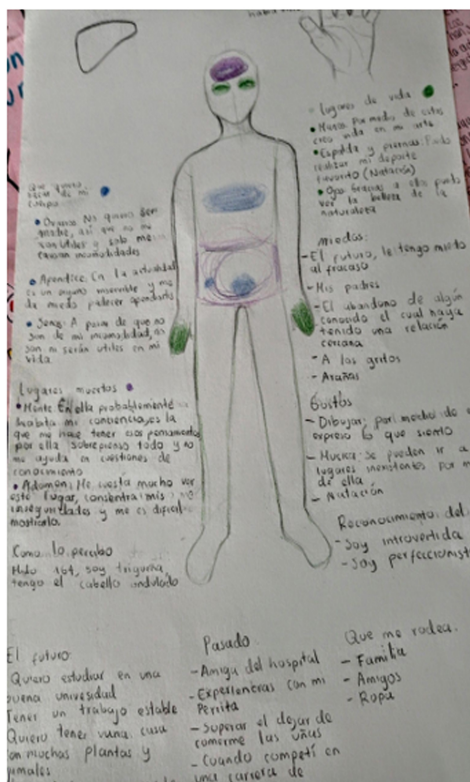 Que quiero
sacar de mi
cuerpo
• Ovarios: No quiero ser
madre, así que no me
son útiles y solo me
causan incomodidades
• Apendice: En la actualidad
es un organo inservible y me
da miedo padecer apendicitis
• Senos: A pesar de que no
son de mi incomodidad, no
son ni serán utiles en mi
vida.
Lugares muertos
• Mente: En ella probablemente
habita mi conciencia, es la
que me hace tener esos pensamientos
por ella sobrepienso todo y no
me ayuda en cuestiones de
conocimiento
• Adomen: Me cuesta mucho ver
este lugar, consentra mis
inseguridades y me es dificil
mostrarla.
Como lo percibo
Mido 164, soy trigueña,
tengo el cabello ondulado
Lugares de vida
• Manos por medio de estas
creo vida en mi arte
• Espalda y piernas: Puedo
realizar mi deporte
favorito (Natación)
• Ojos: Gracias a ellos puedo
ver la belleza de la
naturaleza
miedos:
- El futuro, le tengo miedo
al fracaso
- Mis padres
- El abandono de algún
conocido el cual haya
tenido una relación
cercana
- A los gritos
- Arañas
Gustos
- Dibujar: por medio de
expreso lo que siento
- Musica: se pueden ir a
lugares inexistentes por
de ella
- Natación
Reconocimiento del
- Soy introvertida
- Soy perfeccionist
El futuro:
Quiero estudiar en una
buena universidad
Tener un trabajo estable
Quiero tener una casa
con muchas plantas y
animales
Pasado
- Amiga del hospital
- Experiencias con mi
Perrita
- Superar el dejar de
comerme las uñas
- Cuando competí en
una carrera de
Que me rodea.
- Familia
- Amigos
- Ropa